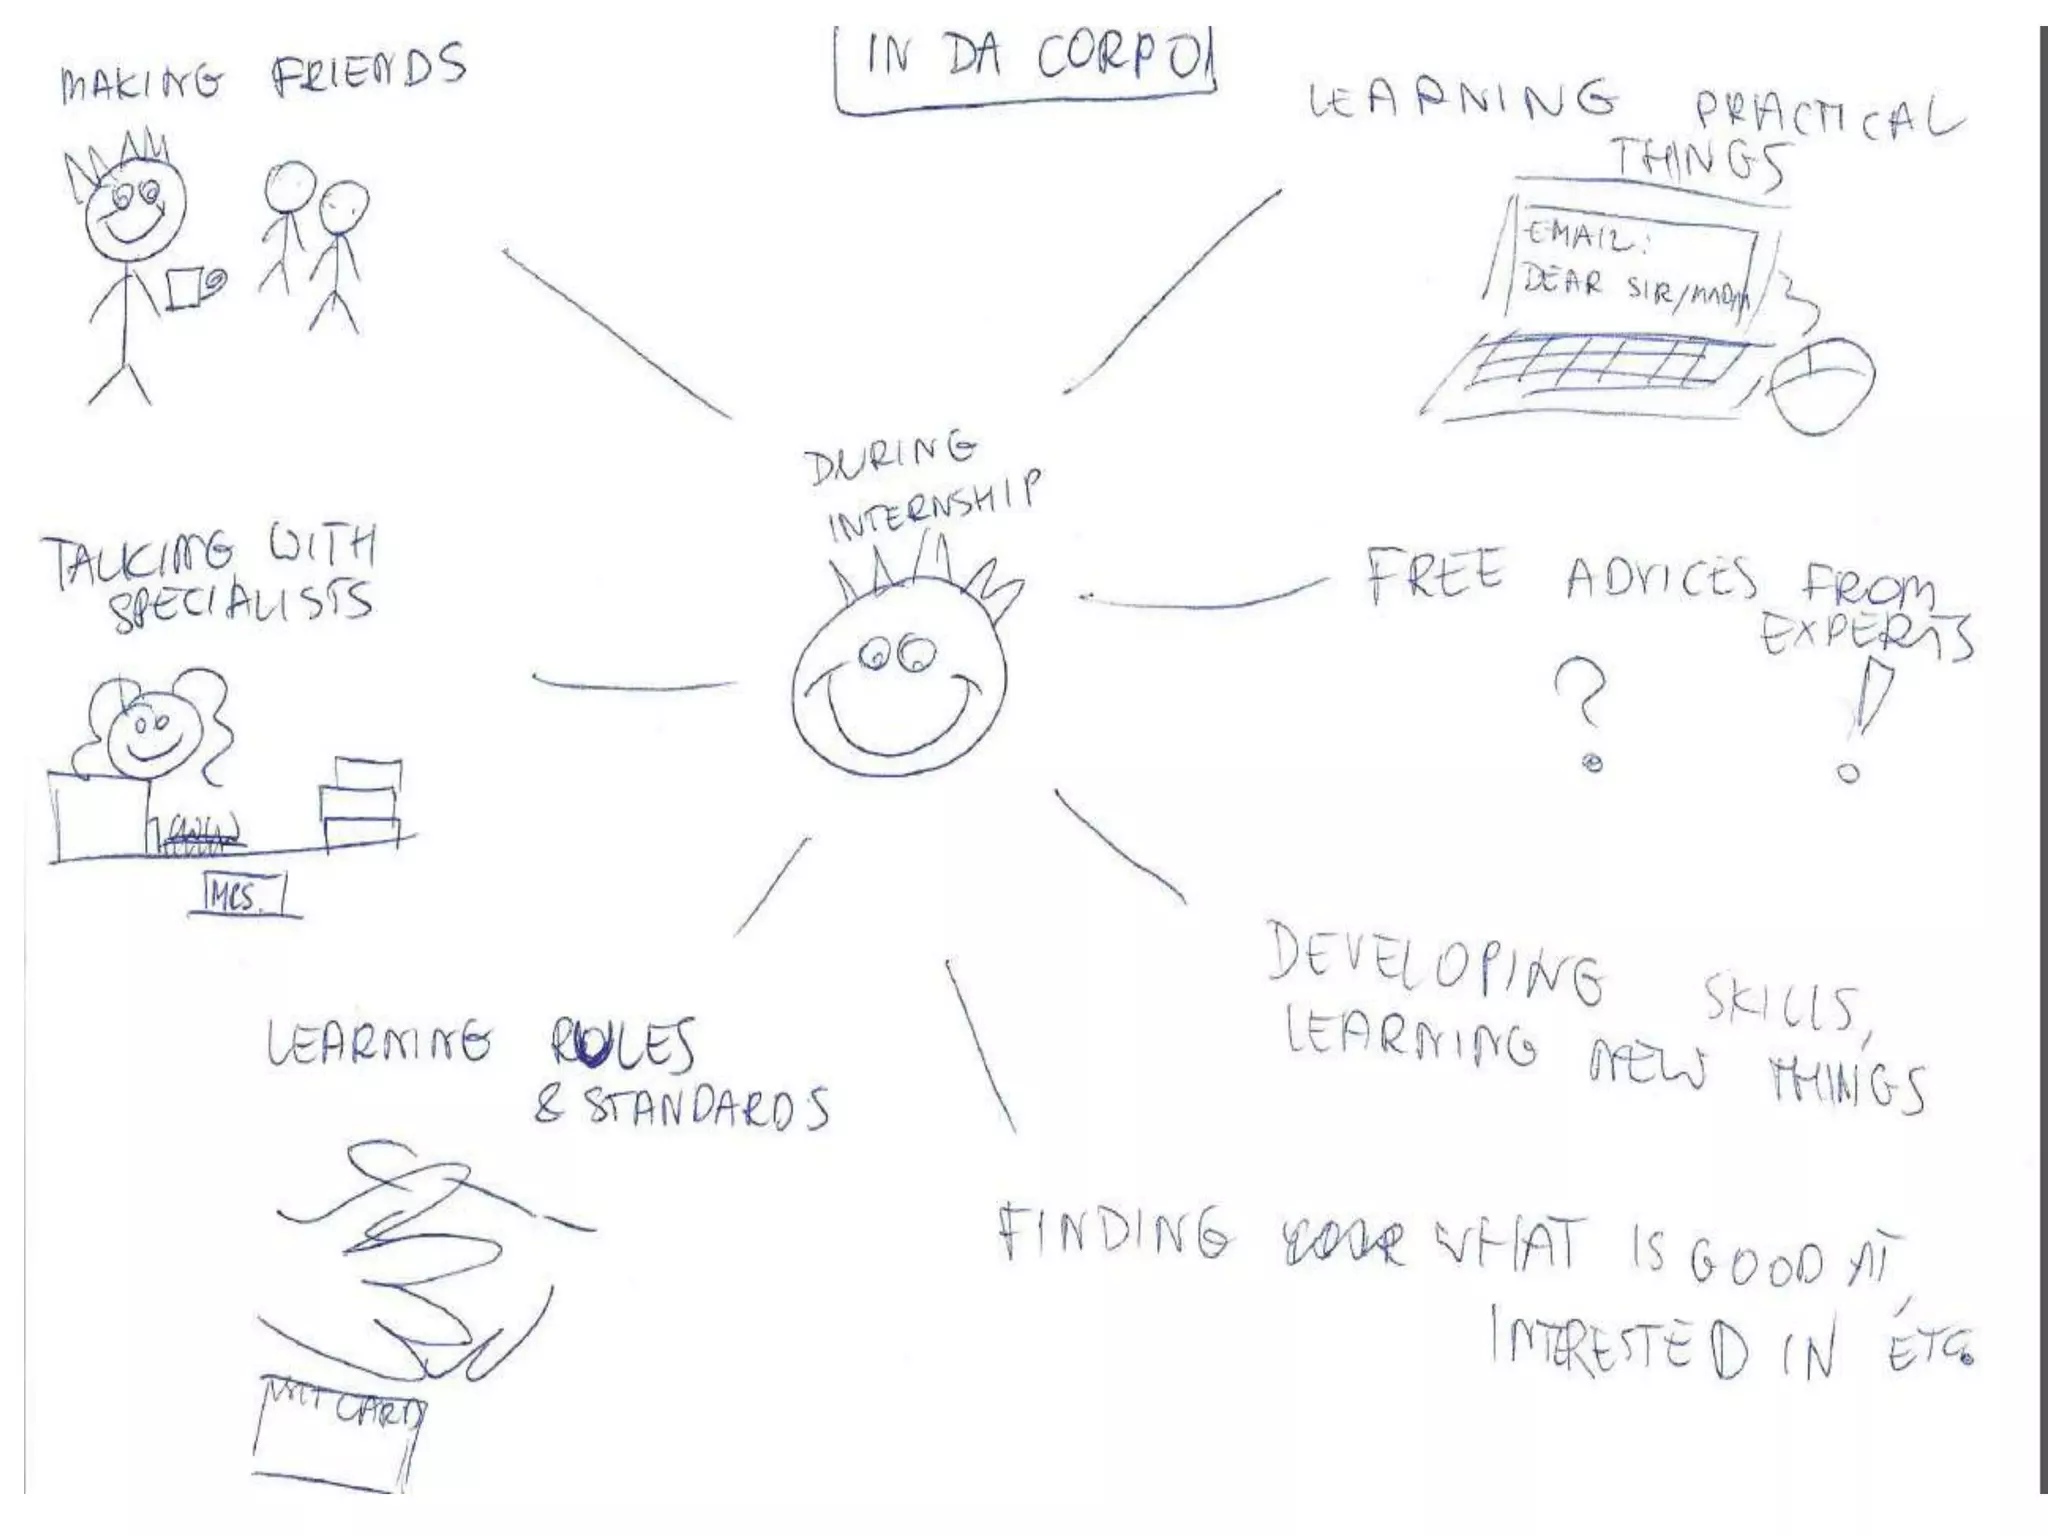 IN DA CORPO
MAKING FRIENDS
LEARNING PRACTICAL
THINGS
EMAIL:
DEAR SIR/MADAM
DURING
INTERNSHIP
TALKING WITH
SPECIALISTS
MRS.
FREE ADVICES FROM
EXPERTS
? !
DEVELOPING SKILLS,
LEARNING NEW THINGS
LEARNING RULES
& STANDARDS
CARD
FINDING WHAT IS GOOD AT,
INTERESTED IN ETC.